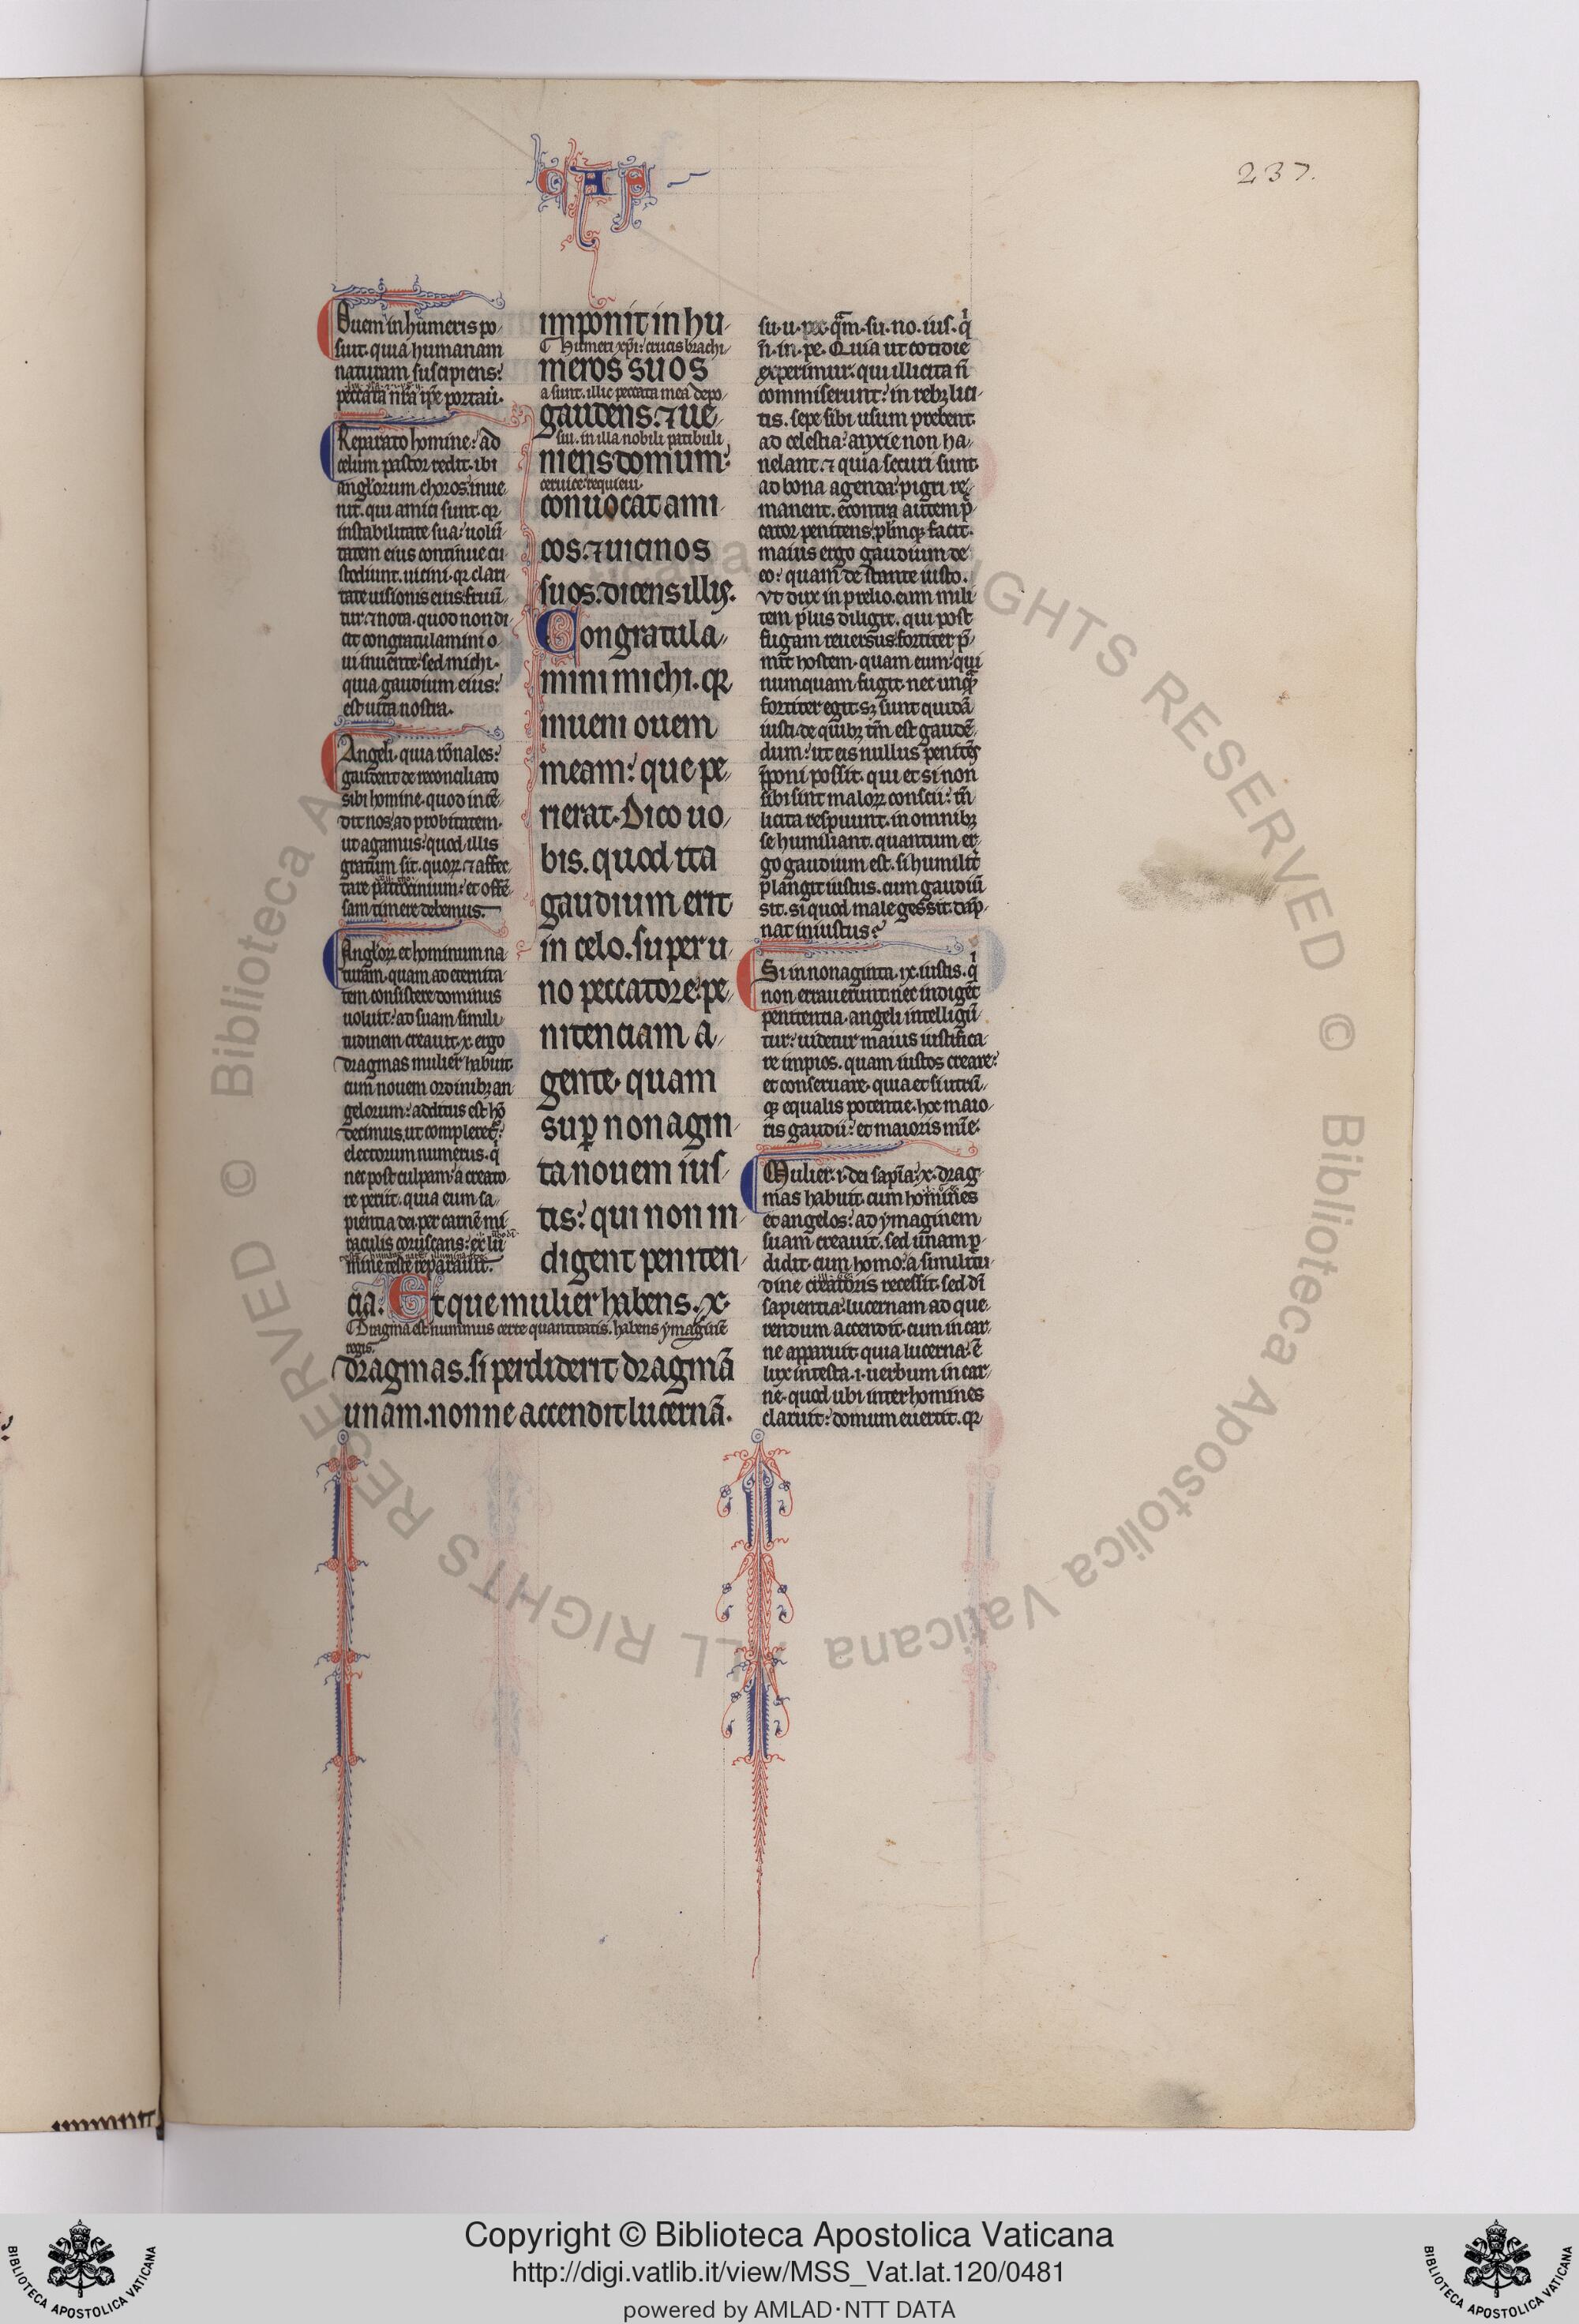 CAP
237.
Ouem in humeris po-
suit. quia humanam
naturam suscipiens:
peccata nr̄a ip̄e portaū.
Reparato homine: ad
celum pastor redit. ibi
angl̓orum choros inue-
nit. qui amici sunt. qꝛ
in stabilitate sua: uolū-
tatem eius continue cu-
stodiunt. uicini. qꝛ clari-
tate uisionis eius fruū-
tur. ⁊ nota. quod non di-
cit congratulamini o-
ui inuente: sed michi.
quia gaudium eius:
est uita nostra.
Angeli. quia rōnales:
gaudent de reconciliato
sibi homine. quod incē-
dit nos ad probitatem.
ut agamus: quod illis
gratum sit. quoꝝ ⁊ affec-
tare patrocinium: et offē-
sam timere debemus.
Angl̓oꝝ et hominum na-
turam. quam ad eternita-
tem consistere dominus
uoluit: ad suam simili-
tudinem creauit. x. ergo
dragmas mulier habuit.
cum nouem ordinibꝫ an-
gelorum: additus est hō
decimus. ut compleret᷑:
electorum numerus. q̇
nec post culpam: a creato-
re periit. quia eum sa-
pientia dei. per carnē mi-
raculis coruscans: ex lu-
mine teste reparauit.
imponit in hu-
Humeri xp̄i: crucis brachi-
meros suos
a sunt. illic peccata mea depo-
gaudens. ⁊ ue-
sui. in illa nobili patibuli
niens domum:
ceruice requieui.
conuocat ami-
cos. ⁊ uicinos
suos. dicens illis.
Congratula-
mini michi. qꝛ
inueni ouem
meam: que pe-
rierat. Dico uo-
bis. quod ita
gaudium erit
in celo. super u-
no peccatore: pe-
nitenciam a-
gente. quam
sup̄ nonagin-
ta nouem ius-
tis: qui non in-
digent peniten-
cia. Et que mulier habens. x.
Dragma est nummus certe quantitatis. habens ymaginē
regis.
dragmas. si perdiderit dragmā
unam. nonne accendit lucernā.
su. u. pec. q̄m. su. no. ius. q̇
n̄. in. pe. Quia ut cotidie
experimur. qui illicita n̄
commiserunt: in rebꝫ lici-
tis. sepe sibi usum prebent.
ad celestia: anxie non ha-
nelant. ⁊ quia securi sunt.
ad bona agenda: pigri re-
manent. econtra autem p̄-
cator penitens. plrīqꝫ facit.
maius ergo gaudium de
eo: quam de stante iusto.
Vt dux in prelio. eum mili-
tem plus diligit. qui post
fugam reuersus fortiter p̄-
mit hostem. quam eum: qui
numquam fugit. nec unq̄
fortiter egit. sꝫ sunt quidā
iusti. de quibꝫ tm̄ est gaudē-
dum: ut eis nullus penitēs
p̄poni possit. qui et si non
sibi sint maloꝝ conscii: tn̄
licita respuunt. in omnibꝫ
se humiliant. quantum er-
go gaudium est. si humilit̄
plangit iustus. cum gaudiū
sit. si quod male gessit. dāp-
nat iniustus?
Si in nonaginta. ix. iustis. q̇
non errauerunt nec indigēt
penitentia. angeli intelligū-
tur: uidetur maius iustifica-
re impios. quam iustos creare:
et conseruare. quia et si utrū-
qꝫ equalis potentie. hoc maio-
ris gaudii: et maioris mīe.
Mulier. i. dei sapīa: x. drag-
mas habuit. cum homines
et angelos: ad ymaginem
suam creauit. sed unam p̱-
didit. cum homo: a similitu-
dine creatoris recessit. sed dī
sapientia: lucernam ad que-
rendum accendit. cum in car-
ne apparuit. quia lucerna: ē
lux in testa. i. uerbum in car-
ne. quod ubi inter homines
claruit: domum euertit. qꝛ
Copyright © Biblioteca Apostolica Vaticana
http://digi.vatlib.it/view/MSS_Vat.lat.120/0481
powered by AMLAD·NTT DATA